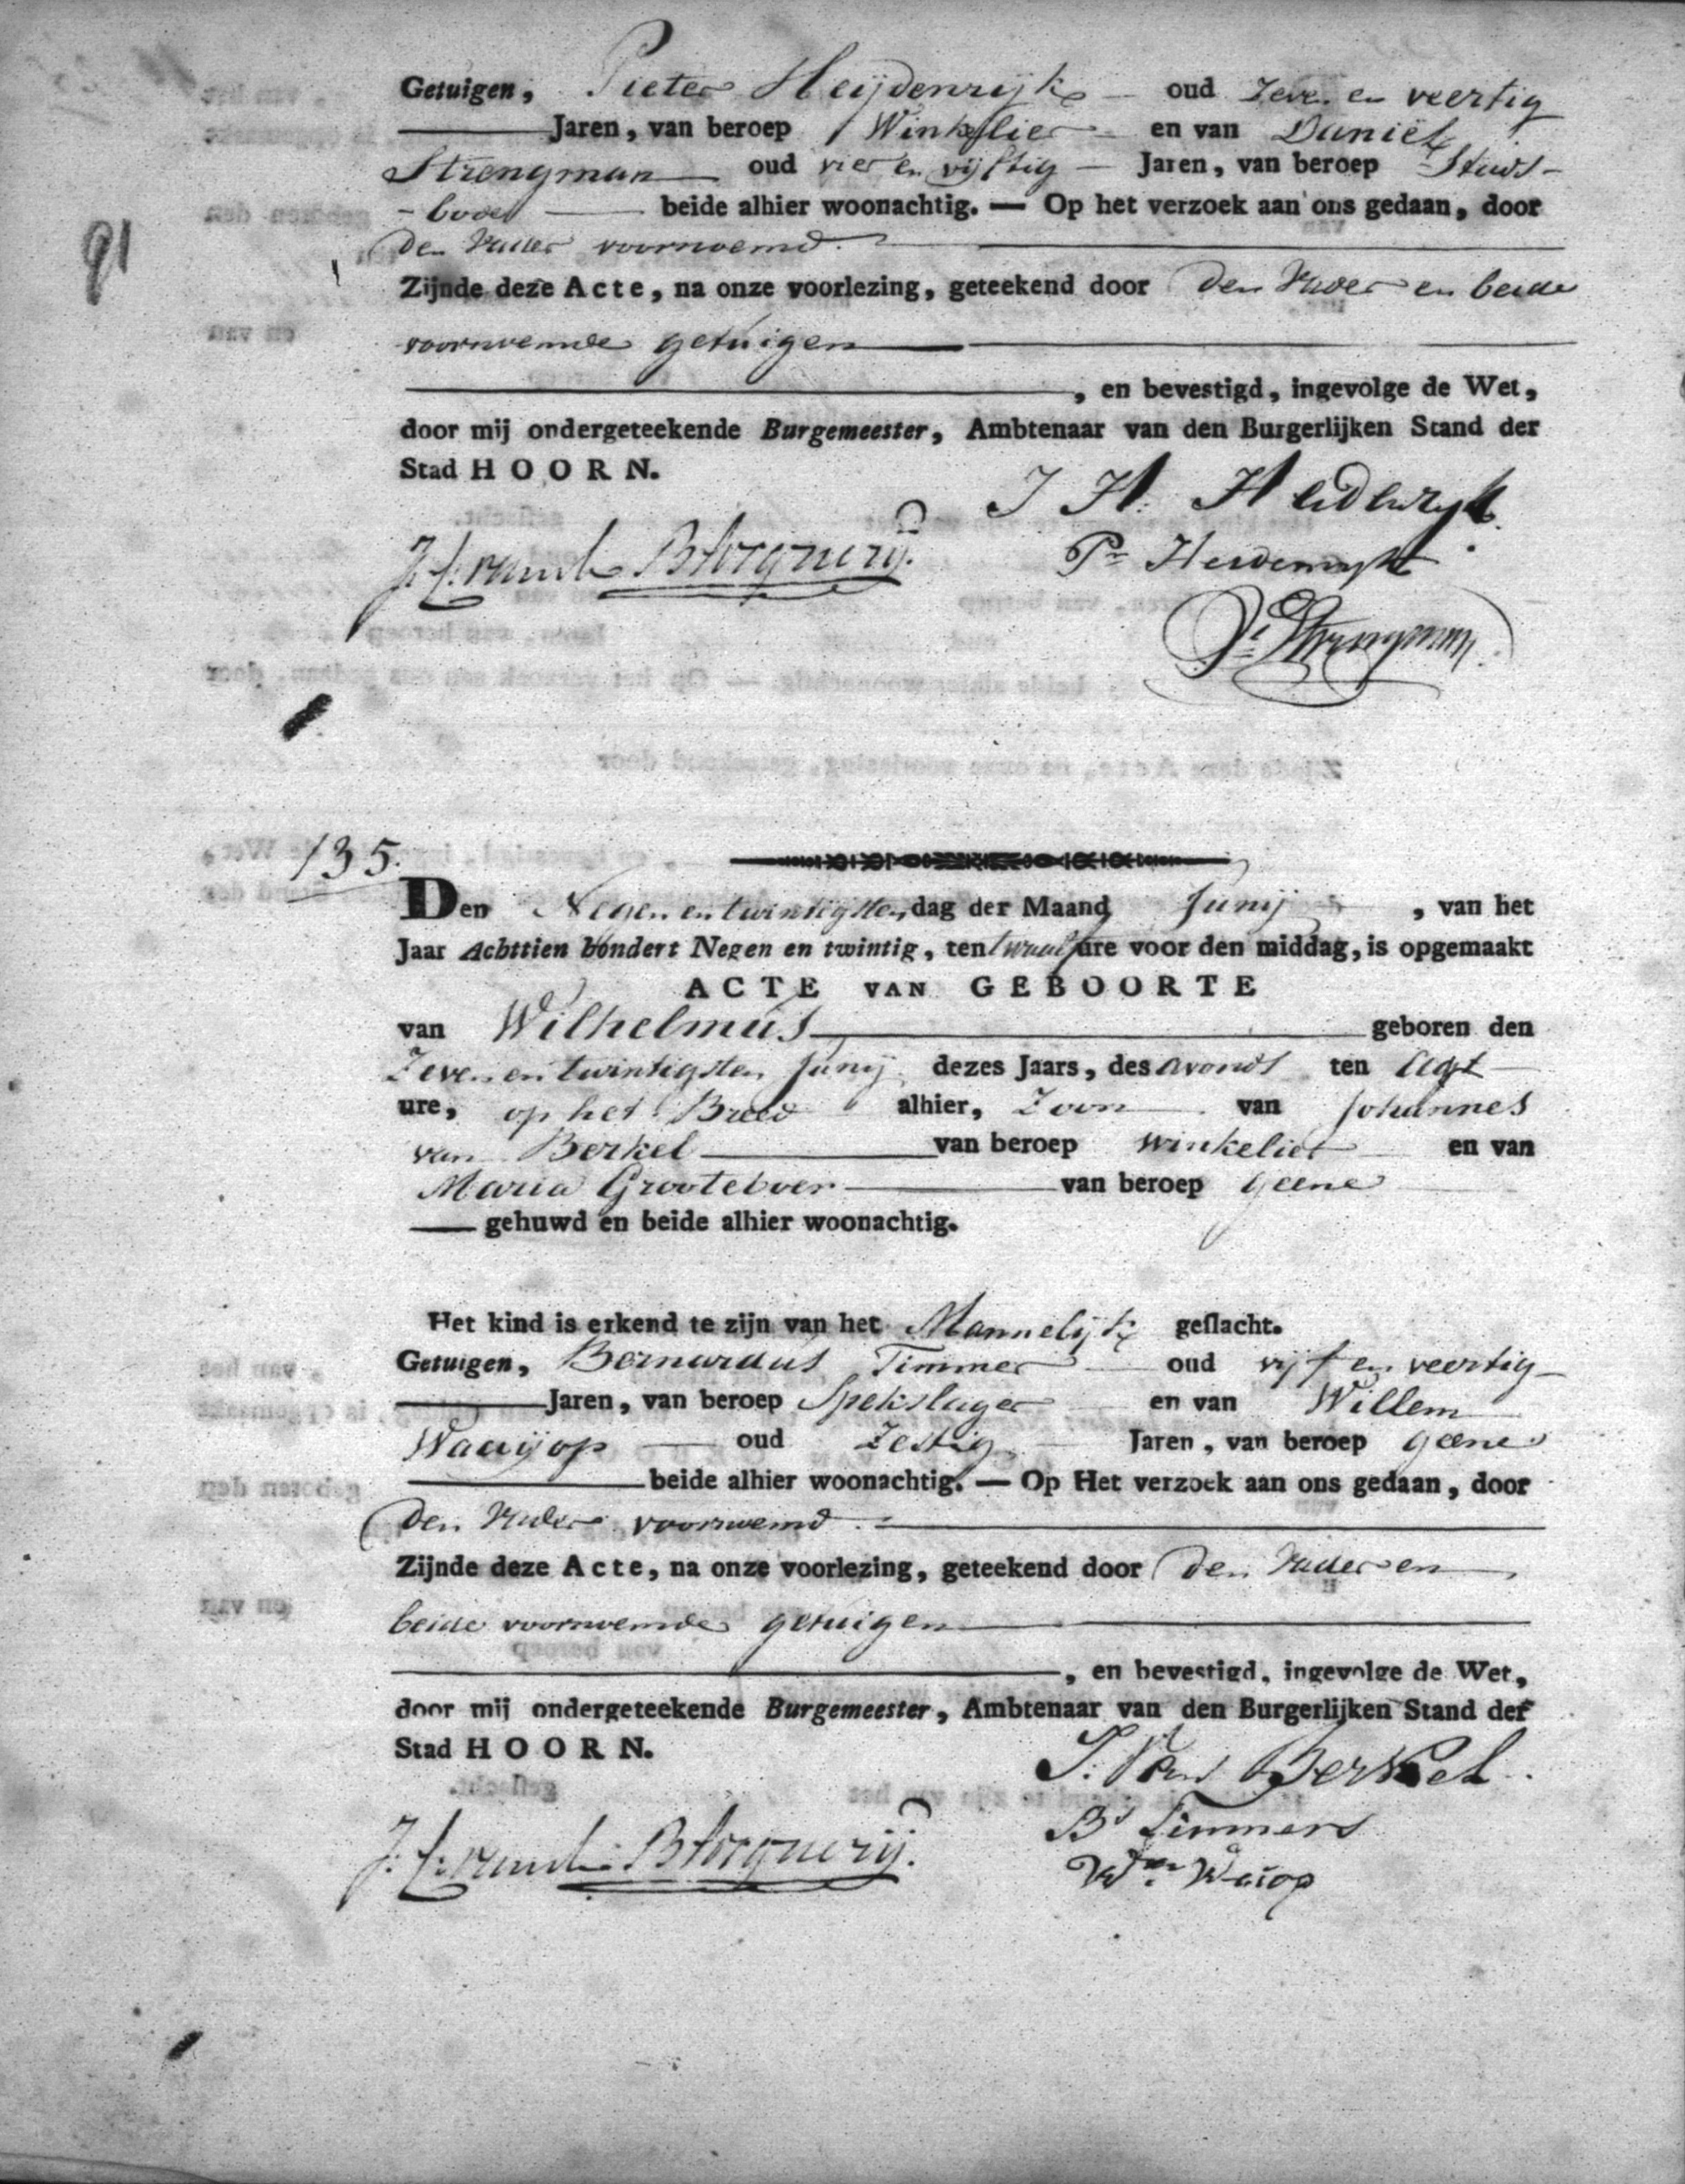 Getuigen, Pieter Heijdenrijk oud Zeven en veertig
91
Jaren, van beroep Winkelier en van Daniël
Strengman oud vier en vijftig Jaren, van beroep Stads-
-bode beide alhier woonachtig. — Op het verzoek aan ons gedaan, door
den Vader voornoemd.
Zijnde deze Acte, na onze voorlezing, geteekend door den Vader en beide
voornoemde getuigen
, en bevestigd, ingevolge de Wet,
door mij ondergeteekende Burgemeester, Ambtenaar van den Burgerlijken Stand der
Stad HOORN.
J H Heidenryk
Pr Heidenryk
Strengman
135.
Den Negen en twintigsten dag der Maand Junij, van het
Jaar Achttien hondert Negen en twintig, ten twaalf ure voor den middag, is opgemaakt
ACTE VAN GEBOORTE
van Wilhelmus geboren den
Zeven en twintigsten Junij dezes Jaars, des avonds ten Agt
ure, op het Breed alhier, Zoon van Johannes
van Berkel van beroep winkelier en van
Maria Grooteboer van beroep geene
gehuwd en beide alhier woonachtig.
Het kind is erkend te zijn van het Mannelijk geslacht.
Getuigen, Bernardus Timmer oud vijf en veertig
Jaren, van beroep Spekslager en van Willem
Waaijop oud Zestig Jaren, van beroep geene
beide alhier woonachtig. — Op Het verzoek aan ons gedaan, door
den Vader voornoemd.
Zijnde deze Acte, na onze voorlezing, geteekend door den Vader en
beide voornoemde getuigen
, en bevestigd, ingevolge de Wet,
door mij ondergeteekende Burgemeester, Ambtenaar van den Burgerlijken Stand der
Stad HOORN.
J. Van Berkel
Bs Timmers
Wm Waiop